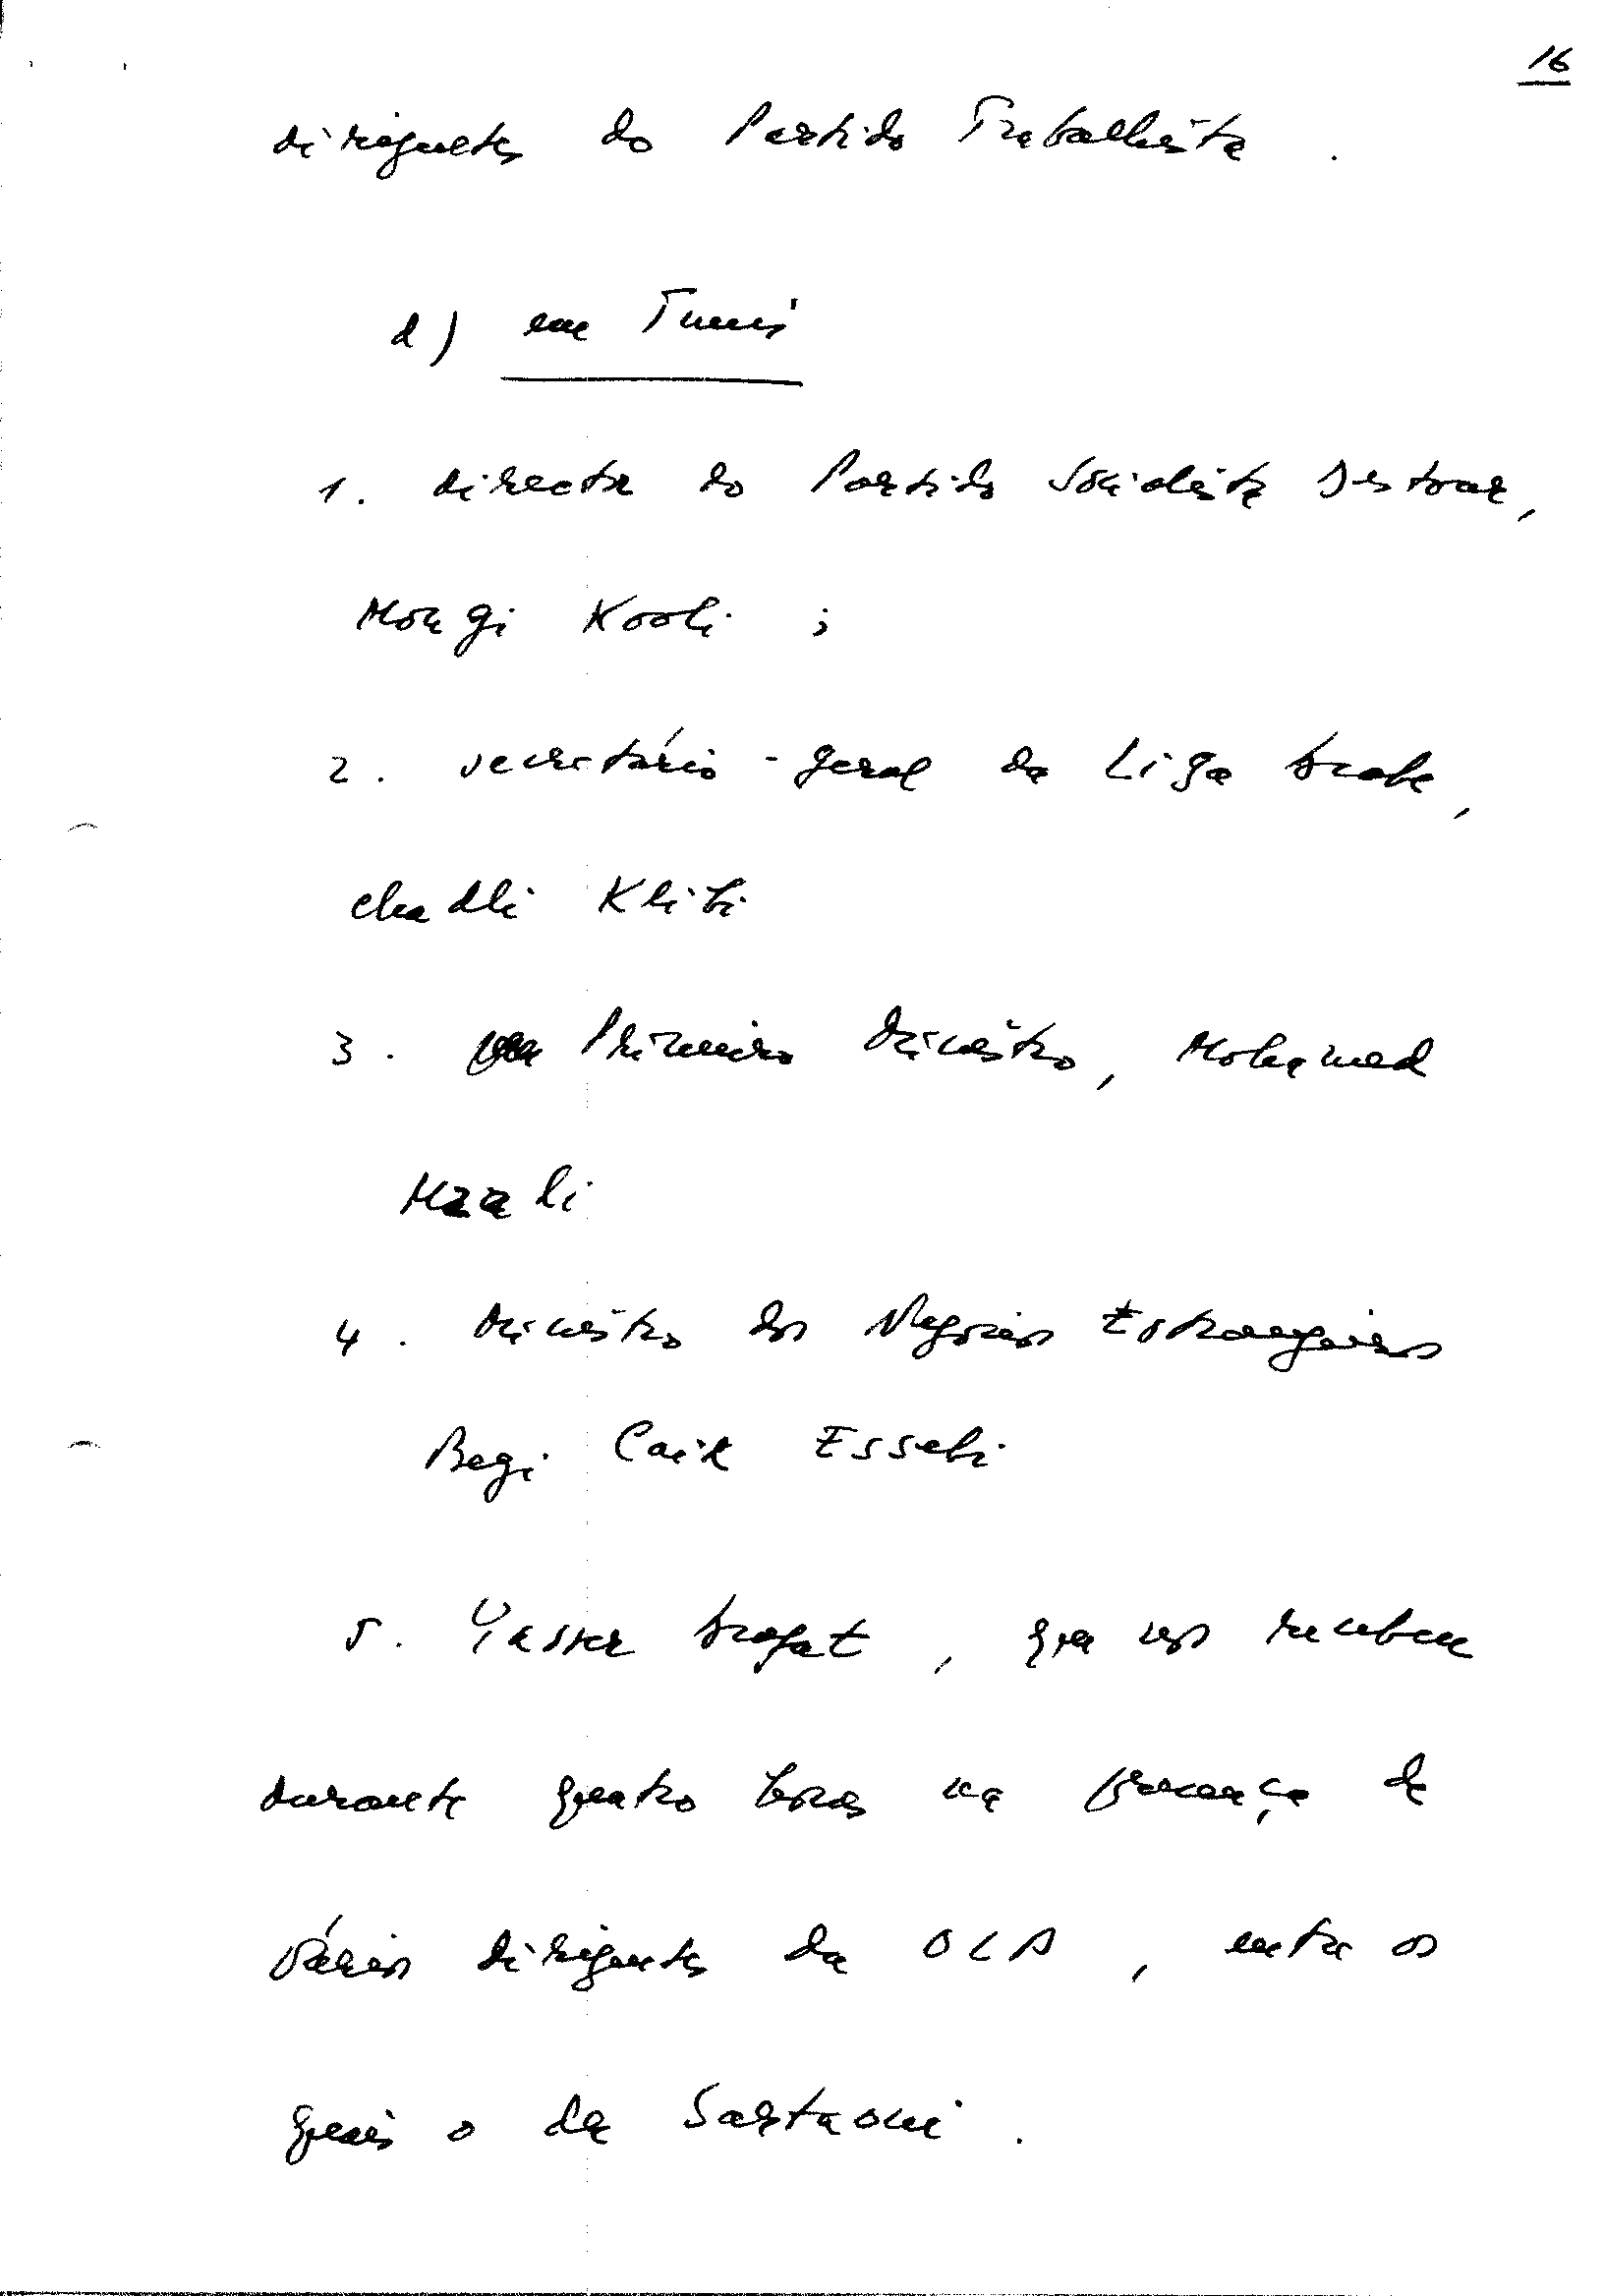 16
dirigentes do Partido Trabalhista .
d) em Tunis
1. director do Partido Socialista Destour,
Mongi Kooli ;
2. secretário-geral da Liga Arabe,
Chadli Klibi
3. Primeiro Ministro, Mohamed
Mzali
4. Ministro dos Negócios Estrangeiros
Begi Caik Essebi
5. Yasser Arafat, que nos recebeu
durante quatro horas na presença de
vários dirigentes da OLP, entre os
quais o